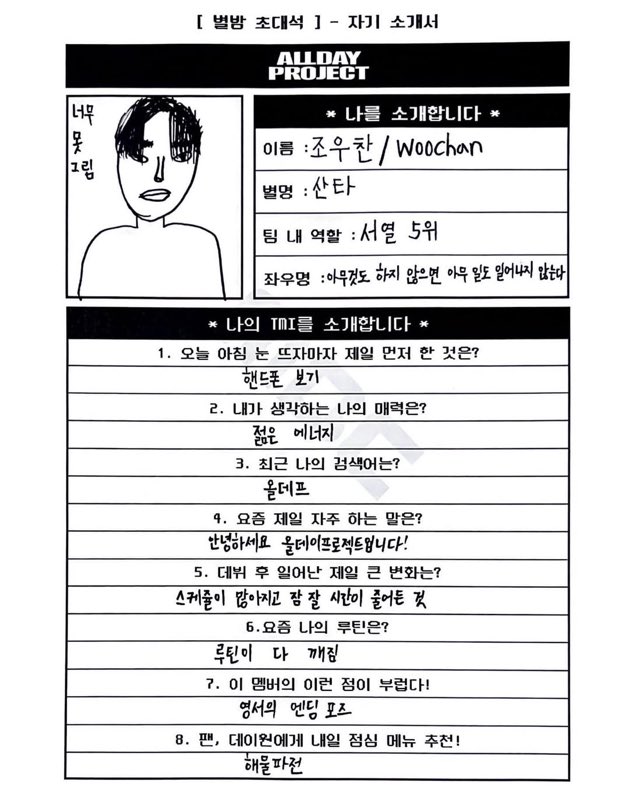 [ 별밤 초대석 ] - 자기 소개서
ALLDAY
PROJECT
너무
못
그림
* 나를 소개합니다 *
이름 : 조우찬 / Woochan
별명 : 산타
팀 내 역할 : 서열 5위
좌우명 : 아무것도 하지 않으면 아무 일도 일어나지 않는다
* 나의 TMI를 소개합니다 *
1. 오늘 아침 눈 뜨자마자 제일 먼저 한 것은?
핸드폰 보기
2. 내가 생각하는 나의 매력은?
젊은 에너지
3. 최근 나의 검색어는?
올데프
4. 요즘 제일 자주 하는 말은?
안녕하세요 올데이프로젝트입니다!
5. 데뷔 후 일어난 제일 큰 변화는?
스케줄이 많아지고 잠 잘 시간이 줄어든 것
6.요즘 나의 루틴은?
루틴이 다 깨짐
7. 이 멤버의 이런 점이 부럽다!
영서의 엔딩 포즈
8. 팬, 데이원에게 내일 점심 메뉴 추천!
해물파전